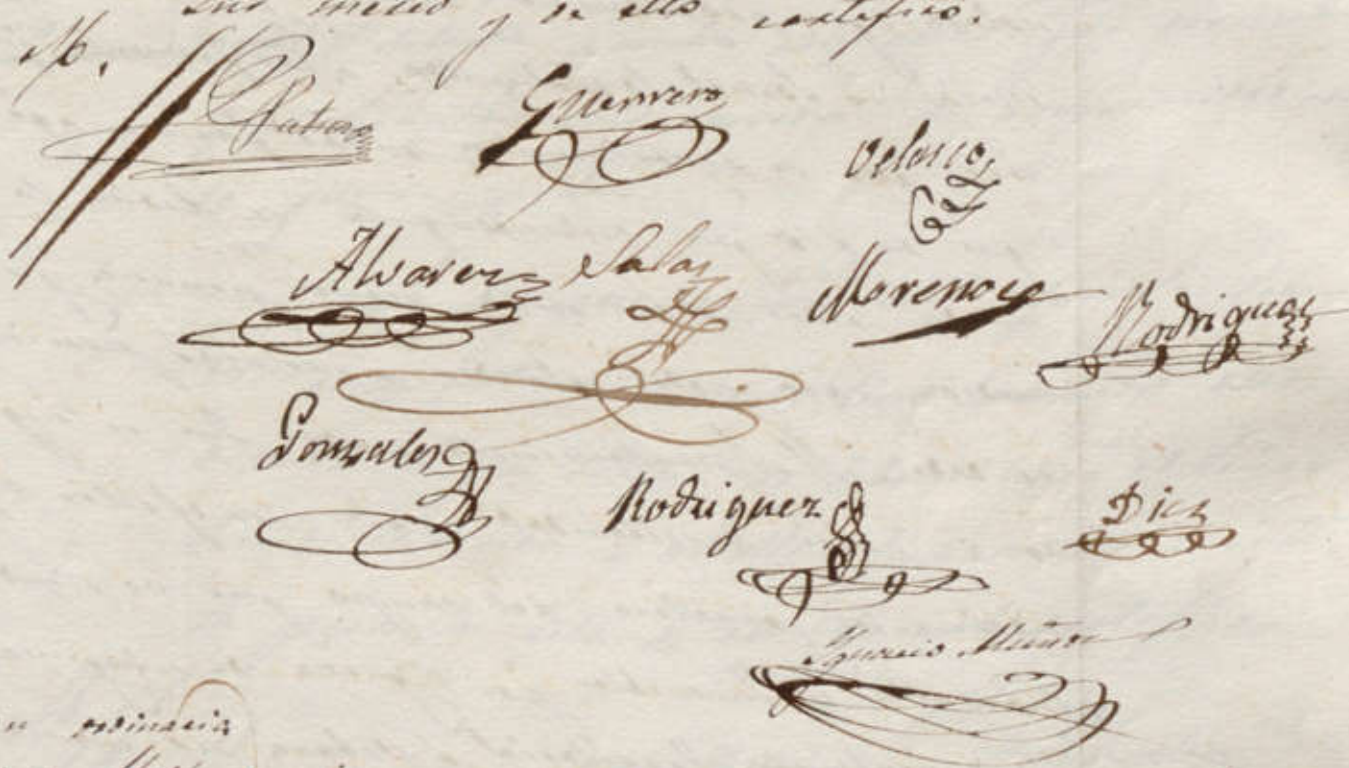 sus mrced y de ello certifico.
Guerrero
Velasco
Alvarez Salas Moreno Rodriguez
Gonzales
Rodriguez Diez
Ignacio Muñoz
ordinaria